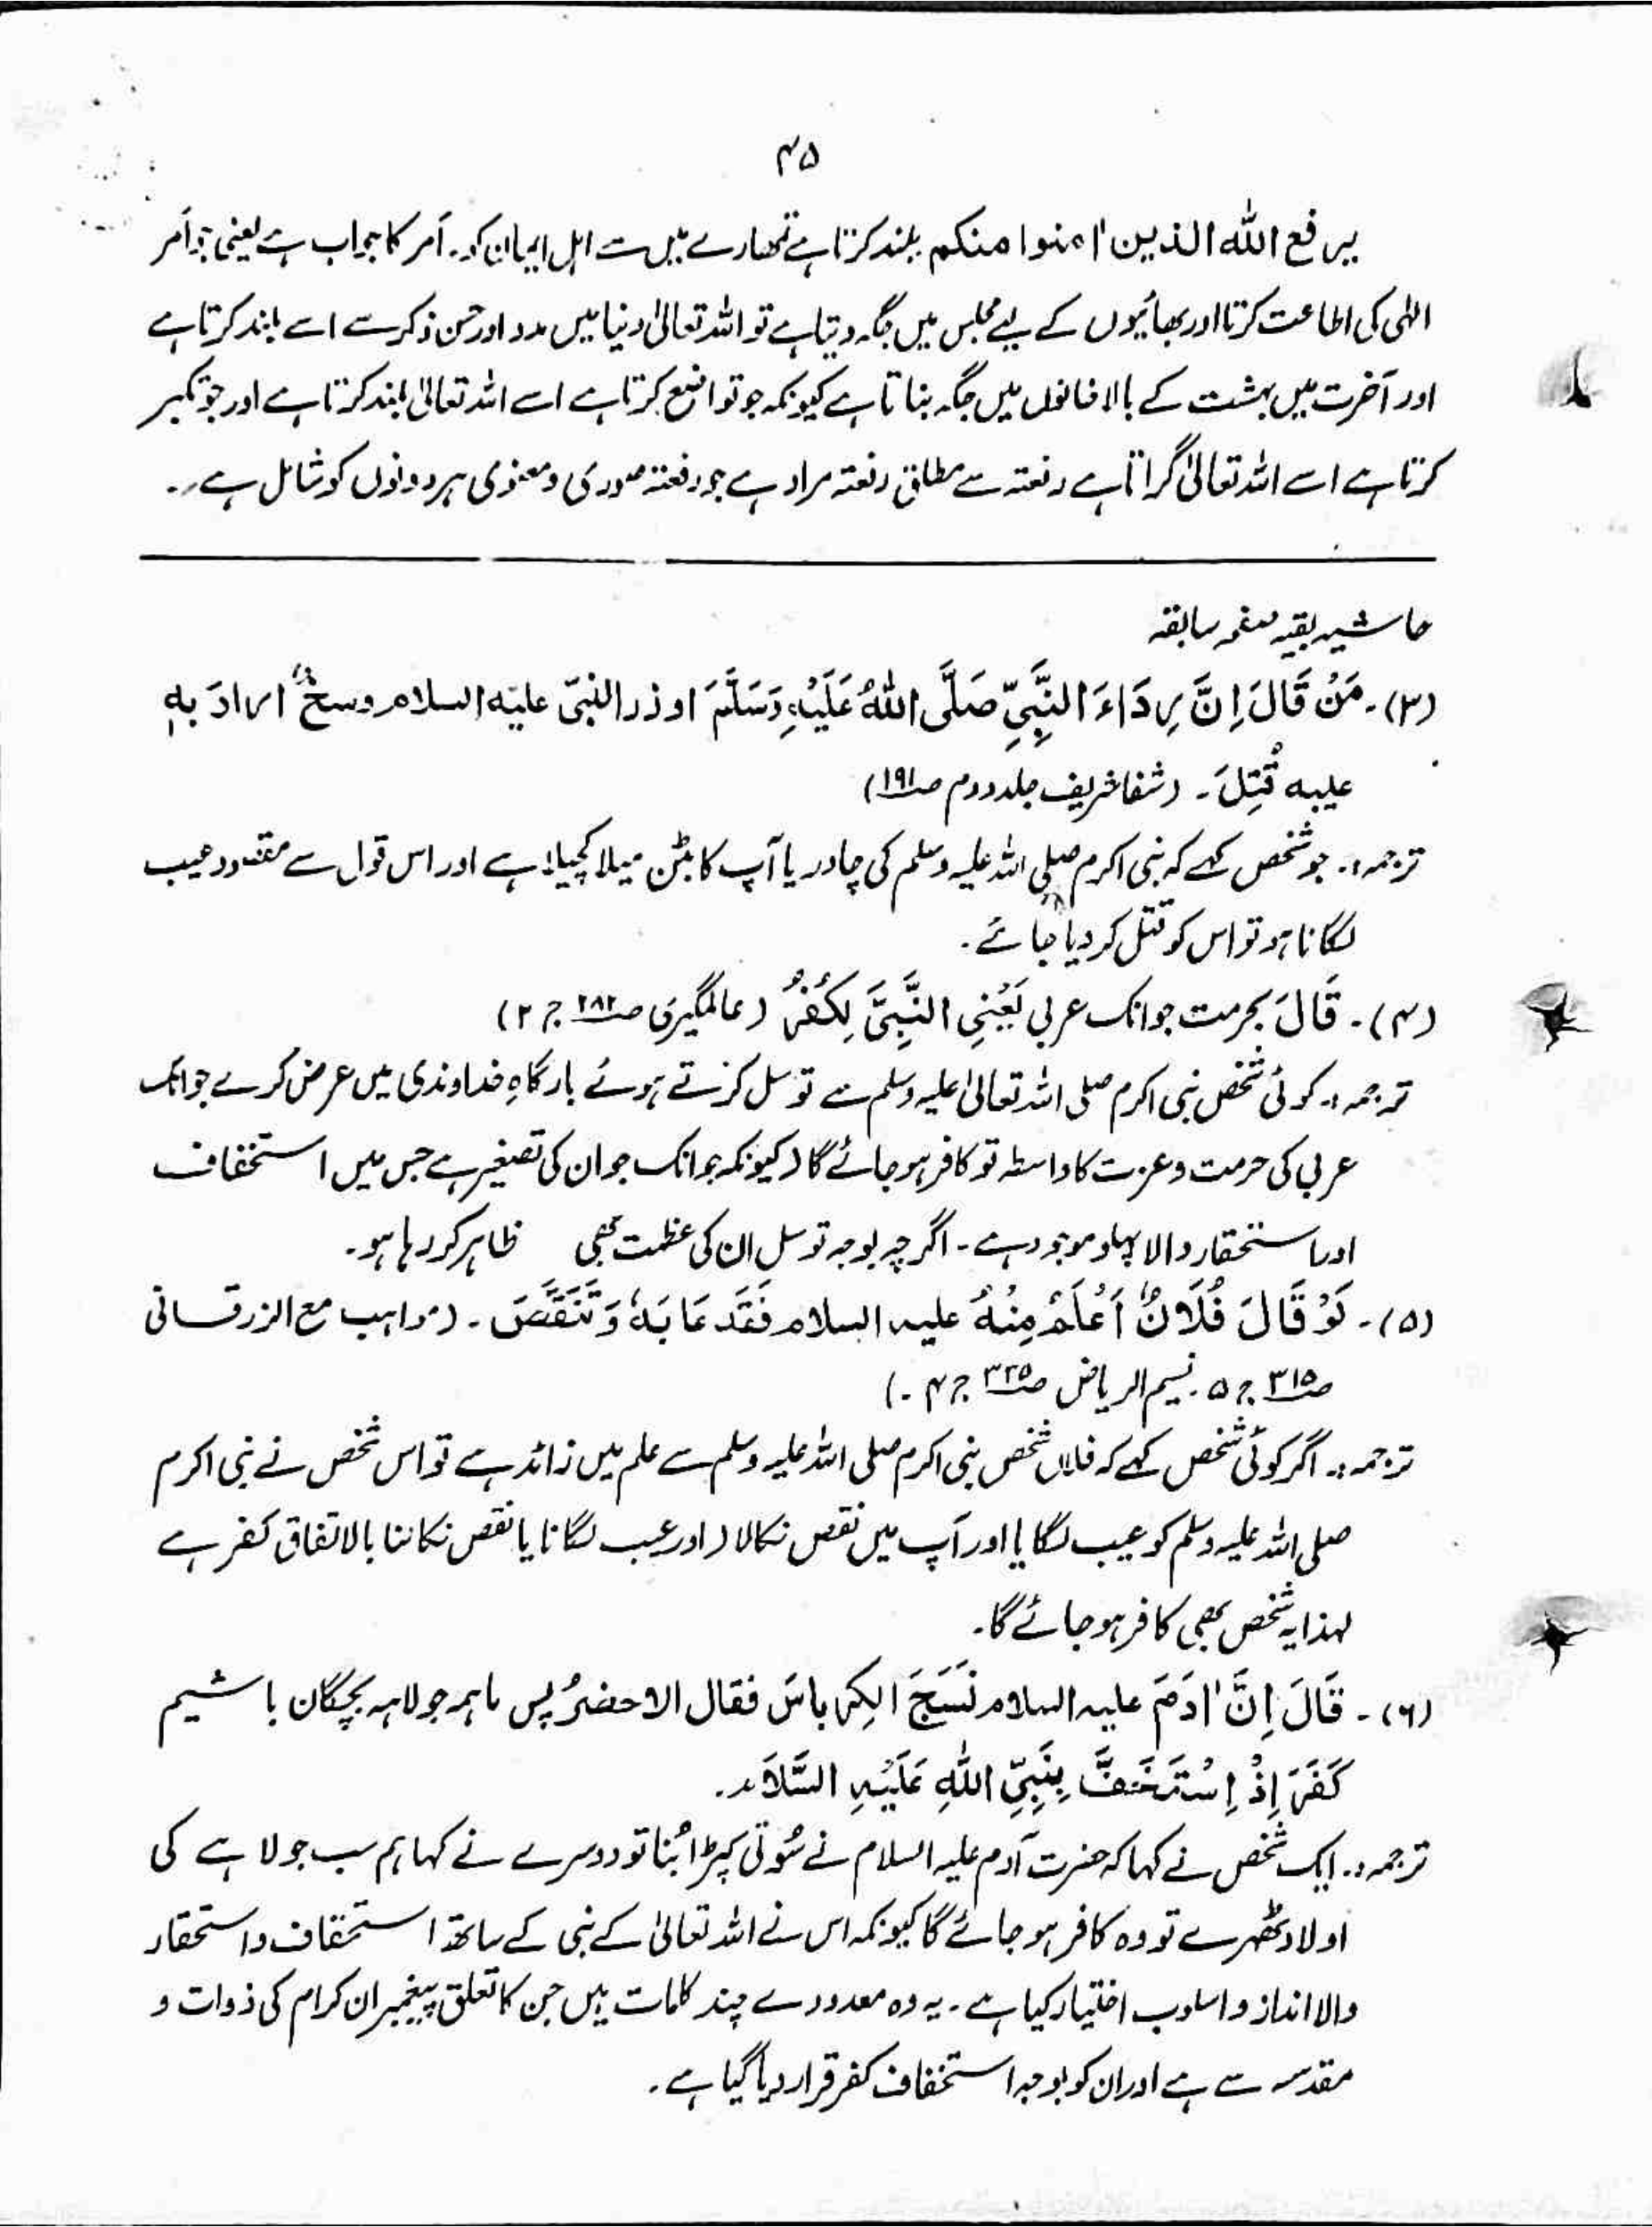 ۴۵
یرفع اللہ الذین اٰمنوا منکم بلند کرتا ہے تمھارے میں سے اہل ایمان کو۔ آمر کا جواب ہے یعنی جو آمر
الٰہی کی اطاعت کرتا اور بھائیوں کے لیے مجلس میں جگہ دیتا ہے تو اللہ تعالیٰ دنیا میں مدد اور حسن ذکر سے اسے بلند کرتا ہے
اور آخرت میں بہشت کے بالا خانوں میں جگہ بناتا ہے کیونکہ جو تواضع کرتا ہے اسے اللہ تعالیٰ بلند کرتا ہے اور جو تکبر
کرتا ہے اسے اللہ تعالیٰ گراتا ہے رفعتہ سے مطلق رفعتہ مراد ہے جو رفعتہ صوری و معنوی ہر دونوں کو شامل ہے۔
حاشیہ بقیہ صفحہ سابقہ
(۳)۔ مَنْ قَالَ اِنَّ رِدَاءَ النَّبِیِّ صَلَّی اللہُ عَلَیْہِ وَسَلَّمَ او ذر النبیّ علیہ السلام وسخٌ ارادَ بہٖ
عیبہ قُتِلَ۔ (شفا شریف جلد دوم صـ۱۹۱)
ترجمہ:۔ جو شخص کہے کہ نبی اکرم صلی اللہ علیہ وسلم کی چادر یا آپ کا بٹن میلا کچیلا ہے اور اس قول سے مقصود عیب
لگانا ہو تو اس کو قتل کر دیا جائے۔
(۴)۔ قَالَ بحرمت جوانک عربی یَعْنِی النَّبِیَّ یَکْفُرُ (عالمگیری صـ۲۸۲ ج ۲)
ترجمہ:۔ کوئی شخص نبی اکرم صلی اللہ تعالیٰ علیہ وسلم سے توسل کرتے ہوئے بارگاہِ خداوندی میں عرض کرے جوانک
عربی کی حرمت و عزت کا واسطہ تو کافر ہو جائے گا (کیونکہ جوانک جوان کی تصغیر ہے جس میں استخفاف
اور استحقار والا پہلو موجود ہے۔ اگرچہ بوجہ توسل ان کی عظمت بھی ظاہر کر رہا ہو۔
(۵)۔ لَوْ قَالَ فُلَانٌ اَعْلَمُ مِنْہُ علیہ السلام فَقَد عَابَہٗ وَتَنَقَّصَ۔ (مواہب مع الزرقانی
صـ۳۱۵ ج ۵۔ نسیم الریاض صـ۳۳۵ ج ۴۔)
ترجمہ:۔ اگر کوئی شخص کہے کہ فلاں شخص نبی اکرم صلی اللہ علیہ وسلم سے علم میں زائد ہے تو اس شخص نے نبی اکرم
صلی اللہ علیہ وسلم کو عیب لگایا اور آپ میں نقص نکالا (اور عیب لگانا یا نقص نکالنا بالاتفاق کفر ہے
لہذا یہ شخص بھی کافر ہو جائے گا۔
(۶)۔ قَالَ اِنَّ اٰدَمَ علیہ السلام نَسَجَ الکِرباسَ فقال الاخرُ پس ما ہمہ جولاہہ بچگان باشیم
کَفَرَ اِذْ اِسْتَخَفَّ بِنَبِیِّ اللہِ عَلَیْہِ السَّلَام۔
ترجمہ:۔ ایک شخص نے کہا کہ حضرت آدم علیہ السلام نے سُوتی کپڑا بُنا تو دوسرے نے کہا ہم سب جولاہے کی
اولاد ٹھہرے تو وہ کافر ہو جائے گا کیونکہ اس نے اللہ تعالیٰ کے نبی کے ساتھ استخفاف و استحقار
والا انداز و اسلوب اختیار کیا ہے۔ یہ وہ معدودے چند کلمات ہیں جن کا تعلق پیغمبران کرام کی ذوات و
مقدسہ سے ہے اور ان کو بوجہ استخفاف کفر قرار دیا گیا ہے۔